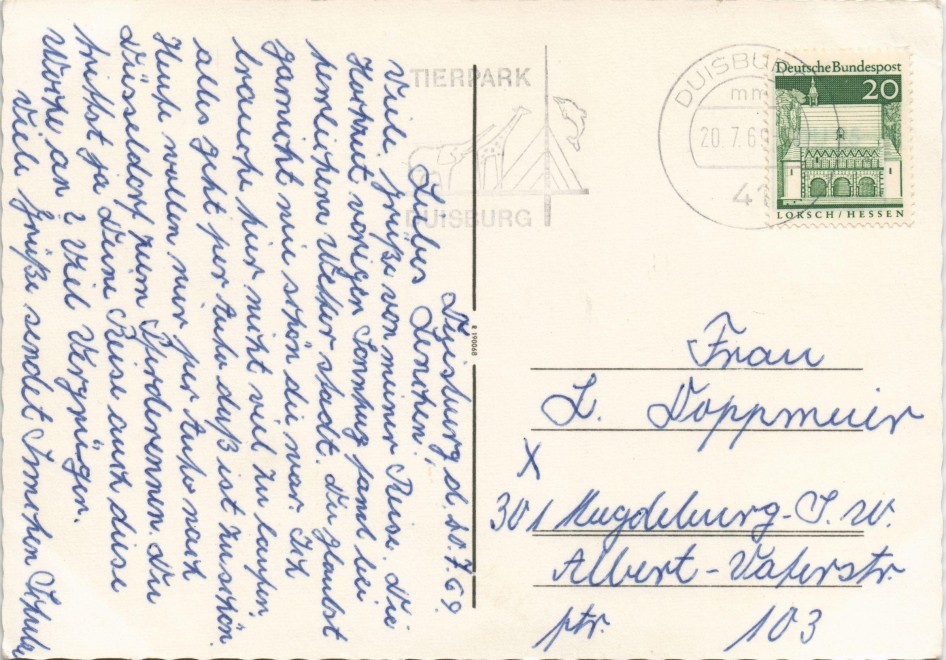 Duisburg, d. 20.7.69.
Liebes Lenchen!
Viele Grüße von meiner Reise. Die
Hochzeit voriger Sonntag fand bei
herrlichem Wetter statt. Du glaubst
garnicht wie schön die war. Ich
brauche hier nicht viel zu laufen
alles geht per Auto daß ist zu schön.
Heute wollen wir per Auto nach
Düsseldorf zum Pferderennen. Du
trittst ja Deine Reise auch diese
Woche an? Viel Vergnügen.
Viele Grüße sendet
TIERPARK
DUISBURG
DUISBURG
mm
20.7.6
Deutsche Bundespost
20
LORSCH/HESSEN
R 190068
Frau
L. Doppmeier
X
301 Magdeburg-S.W.
Albert-Vaterstr.
ptr. 103